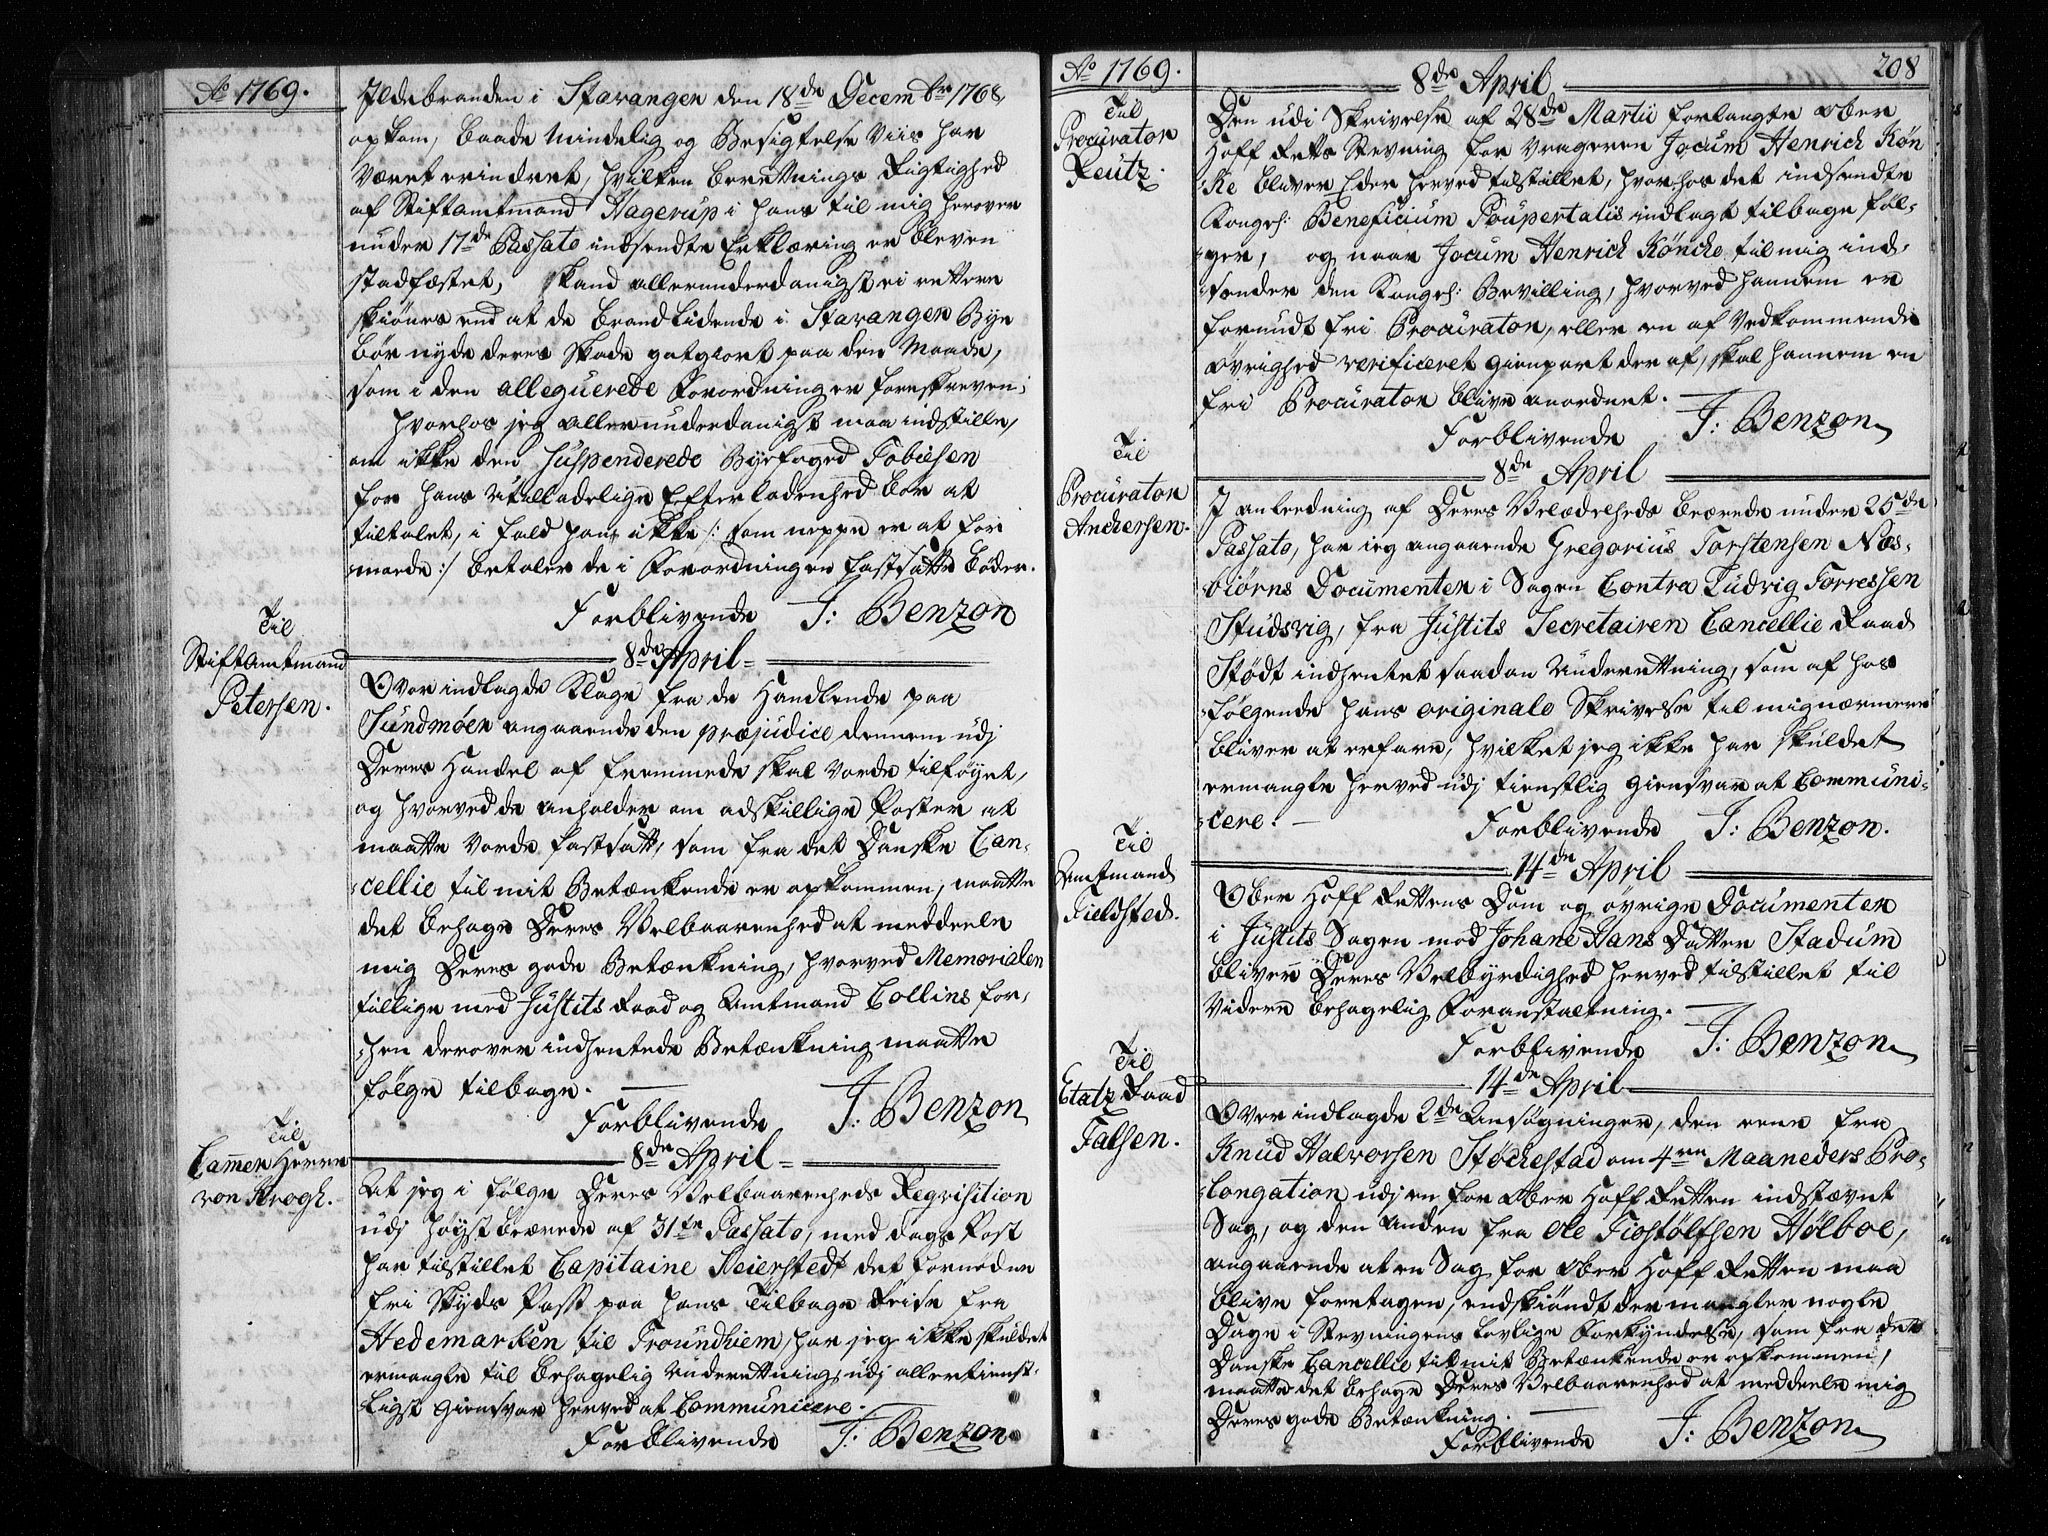 Ao 1769.
Ildebranden i Stavanger den 18de Decembr 1768,
opkom, baade Mindelig og Besigtelse Viis har
været erindret, hvilken berettnings Rigtighed
af Stiftamtmand Hagerup i hans til mig herover
under 17de Passato indsendte Erklæring er bleven
stadfæstet, skand allerunderdanigst ei rettere
skiønes end at de brandlidende i Stavanger Bye
bør nyde deres Skade gotgiort paa den Maade,
som i den alleguerede Forordning er foreskreven;
hvorhos jeg allerunderdanigst maa indstille,
om ikke den suspenderede Byefoged Tobiesen
for hans utilladelige Efterladenhed bør at
tiltales, i fald han ikke /: som neppe er at for
mode :/ betaler de i Forordningen fastsatte bøder.
Forblivende J: Benzon
Til
Stiftamtmand
Petersen.
8de April
Over indlagde Klage fra de Handlende paa
Sundmøer angaaende den præjudice, dennem udj
Deres Handel af fremmede skal vorde tilføyet,
og hvorved de anholder om adskillige Poster at
maatte vorde fastsatt, som fra det Danske Can-
cellie til mit Betænkende er opkommen, maatte
det behage Deres Velbaarenhed at meddeele
mig Deres gode Betænkning, hvorved Memorialen
tillige med Justits Raad og Amtmand Collins for-
hen derover indhentede Betænkning maatte
følge tilbage.
Forblivende J: Benzon
Til
Camer Herre
von Krogh.
8de April
At jeg i følge Deres Velbaarenheds Reqvisition
udj høystbeærede af 31te Passato, med dags Post
har tilstillet Capitaine Keierstedt det fornødne
fri Skyds Pass paa hans Tilbage Reise fra
Hedemarken til Troundhiem, har jeg ikke skuldet
ermangle til behagelig Underettning, udj allertienst-
ligst Giensvar herved at Communicere.
Forblivende J: Benzon
Ao 1769.
208
8de April
Til
Procurator
Reutz.
Den udi Skrivelse af 28de Martii forlangte Ober
Hoff Retts Stevning for Vrageren Jocum Henrich Køn
ke bliver Eder herved tilstillet, hvorhos det indsendte
Kongel: Beneficium Poupertatis indlagt tilbage føl-
ger, og naar Jocum Henrich Køncke til mig ind-
sender den Kongel: Bevilling, hvorved hannem er
forundt fri Procurator, eller en af Vedkommende
Øvrighed verificeret Gienpart deraf, skal hannem en
fri Procurator blive anordnet.
Forblivende J: Benzon
Til
Procurator
Anchersen.
8de April
I anledning af Deres Velædelheds beærede under 25de
Passato, har jeg angaaende Gregorius Torstensen Næs-
biørns Documenter i Sagen Contra Ludvig Torressen
Studsvig, fra Justits Secretairen Cancellie Raad
Stødt indhentet saadan Underettning, som af hos
følgende hans originale Skrivelse til mig nærmere
bliver at erfare, hvilket jeg ikke har skuldet
ermangle herved udj tienstlig Giensvar at Communi-
cere.
Forblivende J: Benzon.
Til
Amtmand
Fieldsted.
14de April
Ober Hoff Rettens Dom og øvrige Documenter
i Justits Sagen mod Johane Hans Datter Stadum
bliver Deres Velbyrdighed herved tilstillet til
Videre behagelig Foranstaltning.
Forblivende J: Benzon
Til
Etatz Raad
Falsen.
14de April
Over indlagde 2de Ansøgninger, den eene fra
Knud Halvorsen Støchestad om 4re Maaneders Pro-
longation udj en for Ober Hoff Retten indstævnt
Sag, og den Anden fra Ole Tiostølfsen Hølboe,
angaaende at en Sag for Ober Hoff Retten maa
blive foretagen, endskiøndt der mangler nogle
Dage i Stevningens lovlige Forkyndelse, som fra det
Danske Cancellie til mit Betænkende er opkommen,
maatte det behage Deres Velbaarenhed at meddeele mig
Deres gode Betænkning.
Forblivende J: Benzon